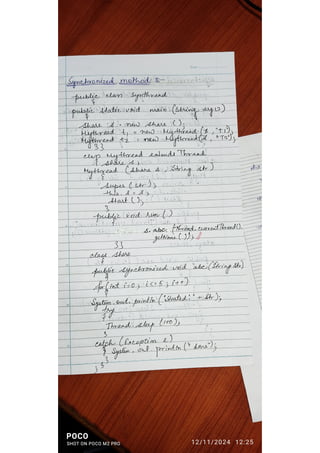 Synchronized method :-
public class Synthread
public static void main (String args[])
Share s = new Share ();
Mythread t1 = new Mythread (s, "T1");
Mythread t2 = new Mythread (s, "T2");
}}
class Mythread extends Thread
{ Share s;
Mythread (Share s, String str)
Super (str);
this.s = s;
Start ();
}
public void run ()
s.abc (Thread.currentThread().
getName ());
}}
class Share
public synchronized void abc (String str)
for (int i=0; i<=5; i++)
System.out.println ("Started:" + str);
try
{
Thread.sleep (100);
}
catch (Exception e)
{ System.out.println ("
}
}}
POCO
SHOT ON POCO M2 PRO
12/11/2024 12:25